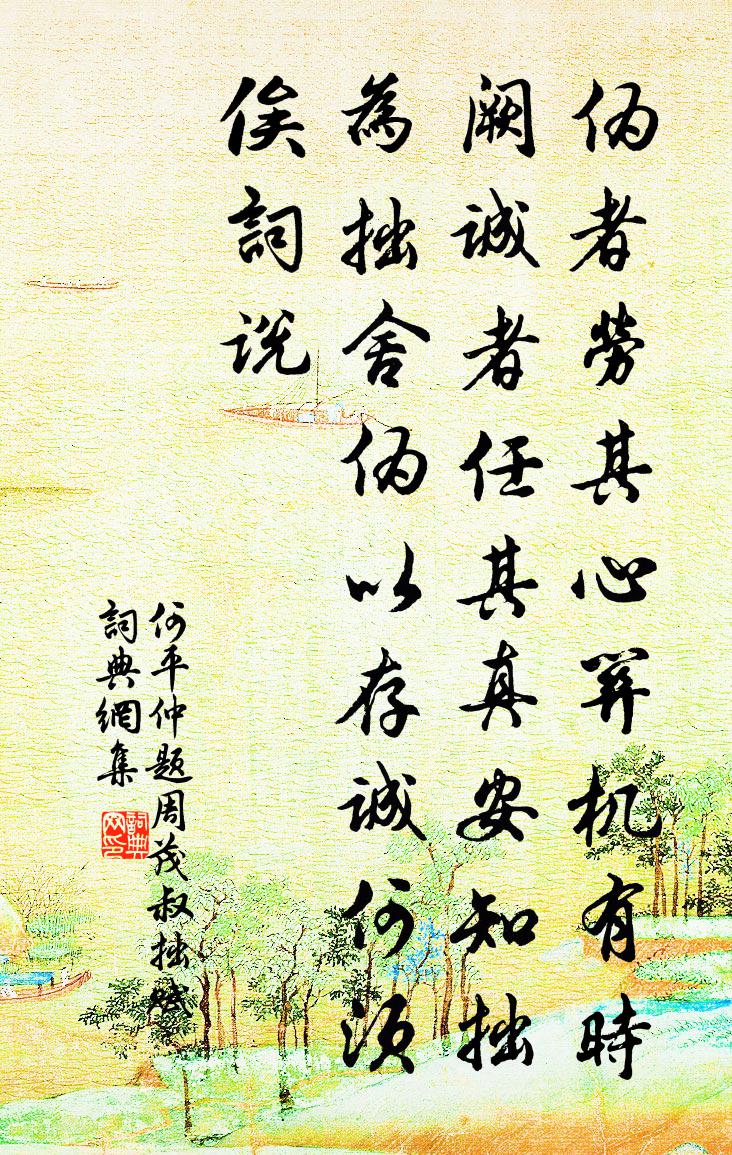 伪者勞其心関机有時
阙诚者任其真安知拙
為拙舍伪以存诚何须
俟詞说
何平仲题周茂叔拙赋
詞典網集
詞典网印